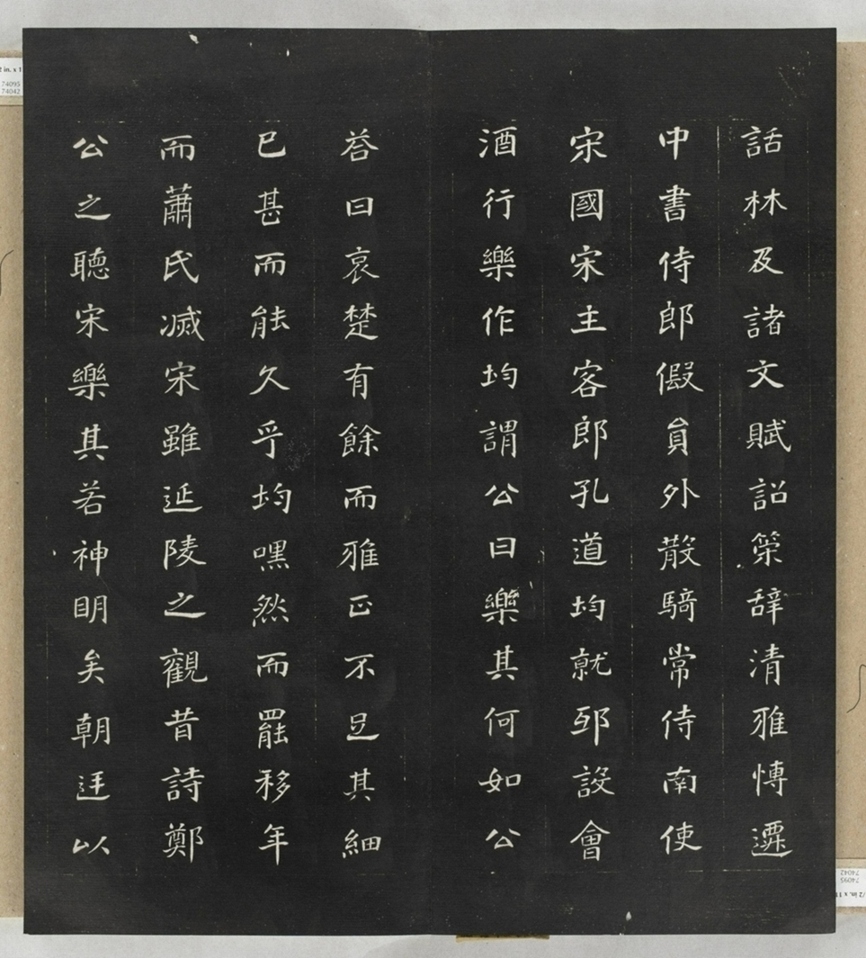 話林及諸文賦詔策辞清雅愽遷
中書侍郎假貟外散騎常侍南使
宋國宋主客郎孔道均就邸設會
酒行樂作均謂公曰樂其何如公
荅曰哀楚有餘而雅正不足其細
已甚而能久乎均嘿然而罷移年
而蕭氏滅宋雖延陵之觀昔詩鄭
公之聽宋樂其若神明矣朝廷以
2 in. x 1
74095
74042